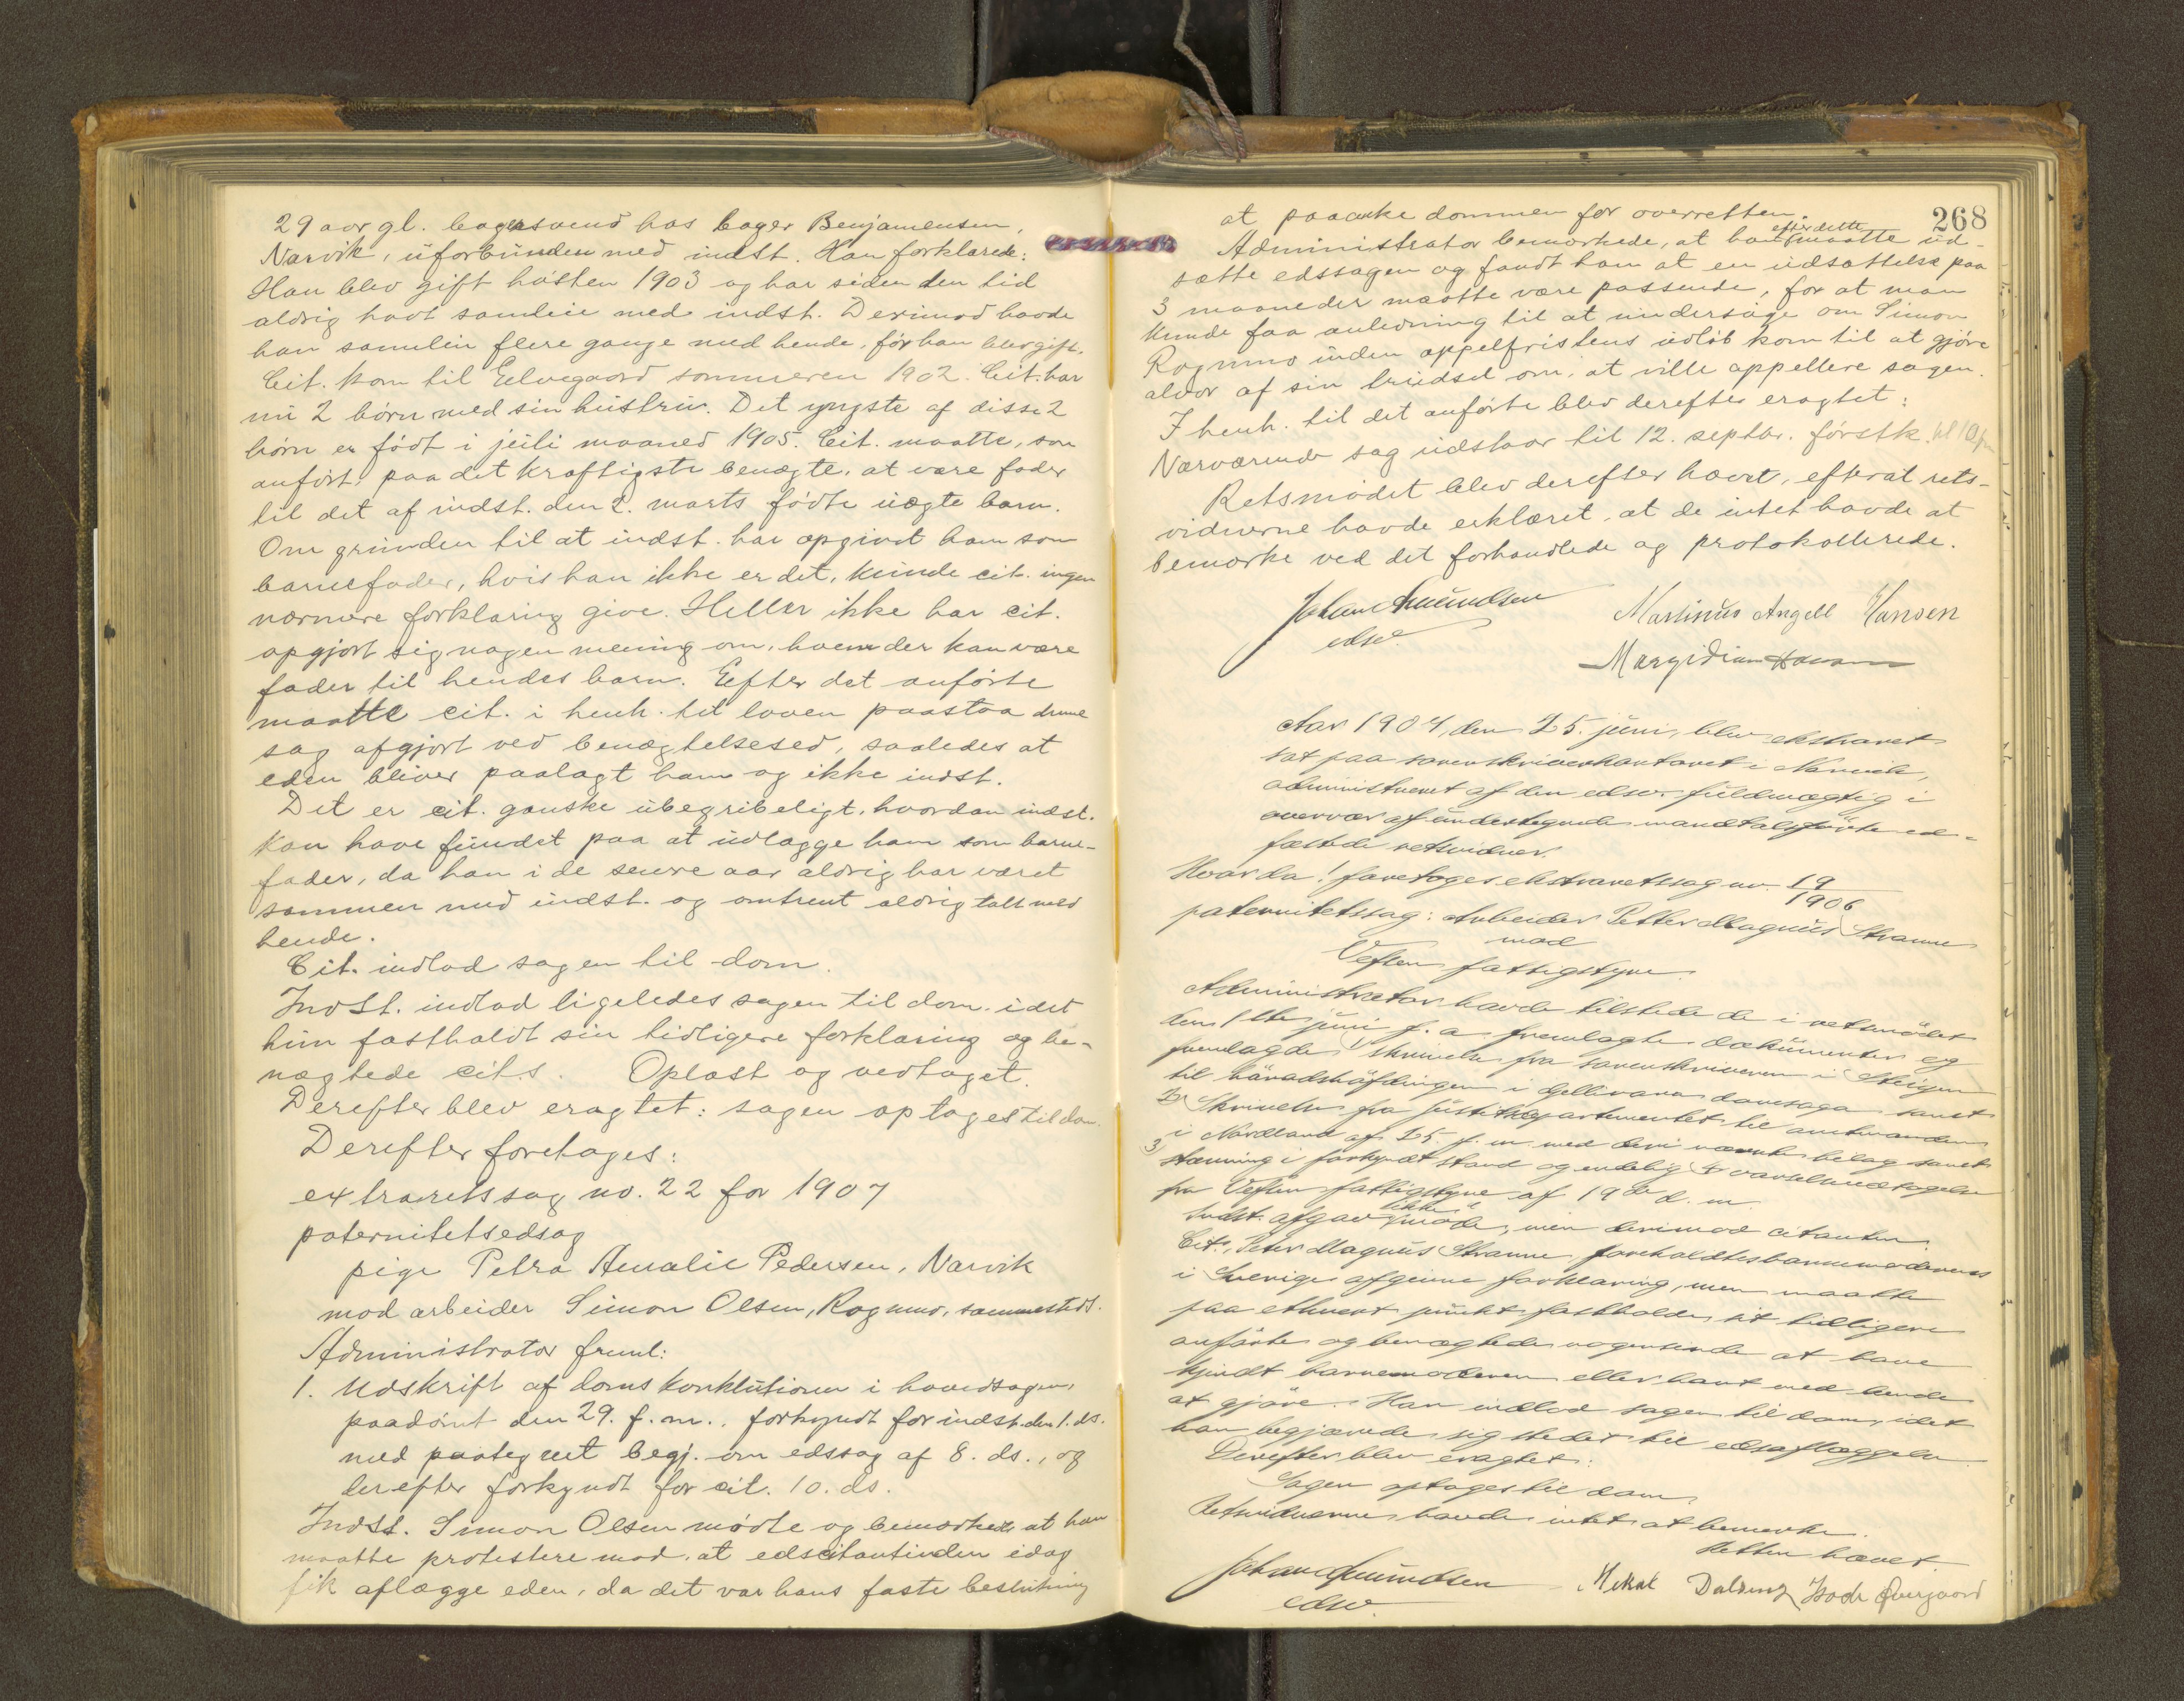 29 aar gl. bagersvend hos bager Benjamensen,
Narvik, uforbunden med indst. Han forklarede:
Han blev gift høsten 1903 og har siden den tid
aldrig havt samleie med indst. Derimod havde
han samleie flere gange med hende, før han blev gift.
Cit. kom til Elvegaard sommeren 1902. Cit. har
nu 2 børn med sin hustru. Det yngste af disse 2
børn er født i juli maaned 1905. Cit. maatte, som
anført, paa det kraftigste benægte, at være fader
til det af indst. den 2. marts fødte uægte barn.
Om grunden til at indst. har opgivet ham som
barnefader, hvis han ikke er det, kunde cit. ingen
nærmere forklaring give. Heller ikke har cit.
opgjort sig nogen mening om, hvem der kan være
fader til hendes barn. Efter det anførte
maatte cit. i henh. til loven paastaa denne
sag afgjort ved benægtelsesed, saaledes at
eden bliver paalagt ham og ikke indst.
Det er cit. ganske ubegribeligt, hvordan indst.
kan have fundet paa at udlægge ham som barne-
fader, da han i de senere aar aldrig har været
sammen med indst. og omtrent aldrig talt med
hende.
Cit. indlod sagen til dom.
Indst. indlod ligeledes sagen til dom, idet
hun fastholdt sin tidligere forklaring og be-
nægtede cit.s. Oplæst og vedtaget.
Derefter blev eragtet: sagen optages til dom.
Derefter foretoges:
extraretssag no. 22 for 1907
paternitetsedsag
pige Petra Amalie Pedersen, Narvik
mod arbeider Simon Olsen, Rognmo, sammesteds.
Administrator freml:
1. Udskrift af doms konklutionen i hovedsagen,
paadømt den 29. f.m., forkyndt for indst. den 1. ds.
med paategnet begj. om edssag af 8. ds., og
derefter forkyndt for cit. 10. ds.
Indst. Simon Olsen mødte og bemærkede at han
maatte protestere mod, at edscitantinden idag
fik aflægge eden, da det var hans faste beslutning
268
at paaanke dommen for overretten.
Administrator bemærkede, at han efter dette maatte ud-
sætte edssagen og fandt han at en udsættelse paa
3 maaneder maatte være passende, for at man
kunde faa anledning til at undersøge om Simon
Rognmo inden appelfristens udløb kom til at gjøre
alvor af sin trudsel om, at ville appellere sagen.
I henh. til det anførte blev derefter eragtet:
Nærværende sag udstaar til 12. septbr. førstk. kl 10 fm
Retsmødet blev derefter hævet, efterat rets-
vidnerne havde erklæret, at de intet havde at
bemærke ved det forhandlede og protokollerede.
Johan Amundsen
edsv.
Martinus Angell Hansen
Aar 1907, den 25. juni, blev ekstraret
sat paa sorenskriverkontoret i Narvik,
administreret af den edsv. fuldmægtig i
overvær af undertegnede mandtalsførte ed-
fæstede retsvidner.
Hvorda! foretoges ekstraretssag nr. 19/1906
paternitetssag: Arbeider Petter Magnus Stranne
mod
Vefsen fattigstyre
Administrator havde tilstede de i retsmødet
den 1ste juni f. a. fremlagte dokumenter og
fremlagde 1 skrivelse fra sorenskriveren i Steigen
til häradshöfdingen i Gellivara domsaga samt
2 Skrivelse fra justitsdepartementet til amtmanden
i Nordland af 25. f. m. med deri nævnte bilag samt
3 stævning i forkyndt stand og endelig 4 varselmodtagelse
fra Vefsen fattigstyre af 19de d. m.
Indst. afgav ikke møde, men derimod citanten.
Cit., Peter Magnus Stranne foreholdtes barnemoderens
i Sverige afgivne forklaring, men maatte
paa ethvert punkt fastholde sit tidligere
anførte og benægtede nogensinde at have
kjendt barnemoderen eller havt med hende
at gjøre. Han indlod sagen til dom, idet
han begjærede sig stedet til edsaflæggelse.
Derefter blev eragtet:
Sagen optages til dom.
Retsvidnerne havde intet at bemerke.
Retten hævet.
Johan Amundsen
edsv.
Mikal Dalseng